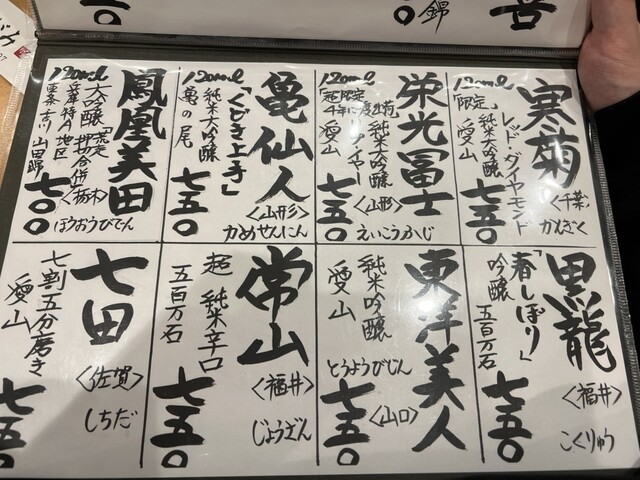 錦
五〇
寒菊
120ml
「限定」純米大吟醸
レッド・ダイヤモンド
愛山
〈千葉〉
かんぎく
七五〇
栄光冨士
120ml
純米大吟醸
愛山
〈山形〉
えいこうふじ
七五〇
亀仙人
120ml
「くどき上手」
純米大吟醸
亀の尾
〈山形〉
かめせんにん
七五〇
鳳凰美田
120ml
大吟醸
兵庫特A地区
吉川 山田錦
〈栃木〉
ほうおうびでん
七〇〇
黒龍
「春しぼり」
吟醸
五百万石
〈福井〉
こくりゅう
七五〇
東洋美人
純米吟醸
愛山
とうようびじん
〈山口〉
七五〇
常山
超 純米辛口
五百万石
〈福井〉
じょうざん
七五〇
七田
七割五分磨き
愛山
〈佐賀〉
しちだ
七五〇